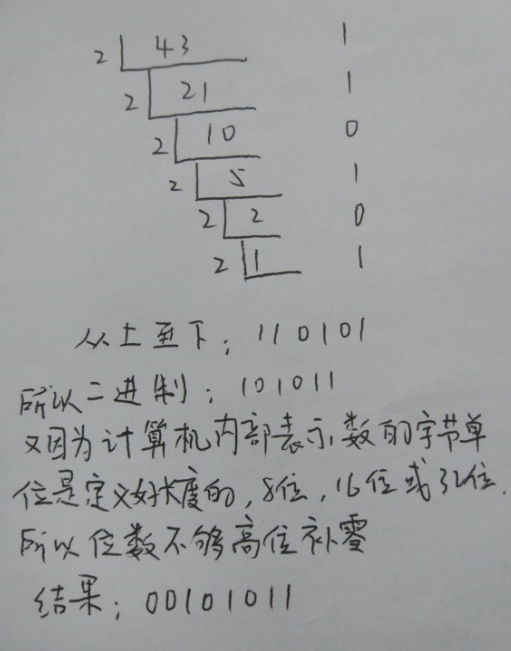 2 43 1
2 21 1
2 10 0
2 5 1
2 2 0
2 1 1
从上至下: 110101
所以二进制: 101011
又因为计算机内部表示数的字节单
位是定义好长度的,8位,16位或32位.
所以位数不够高位补零
结果: 00101011